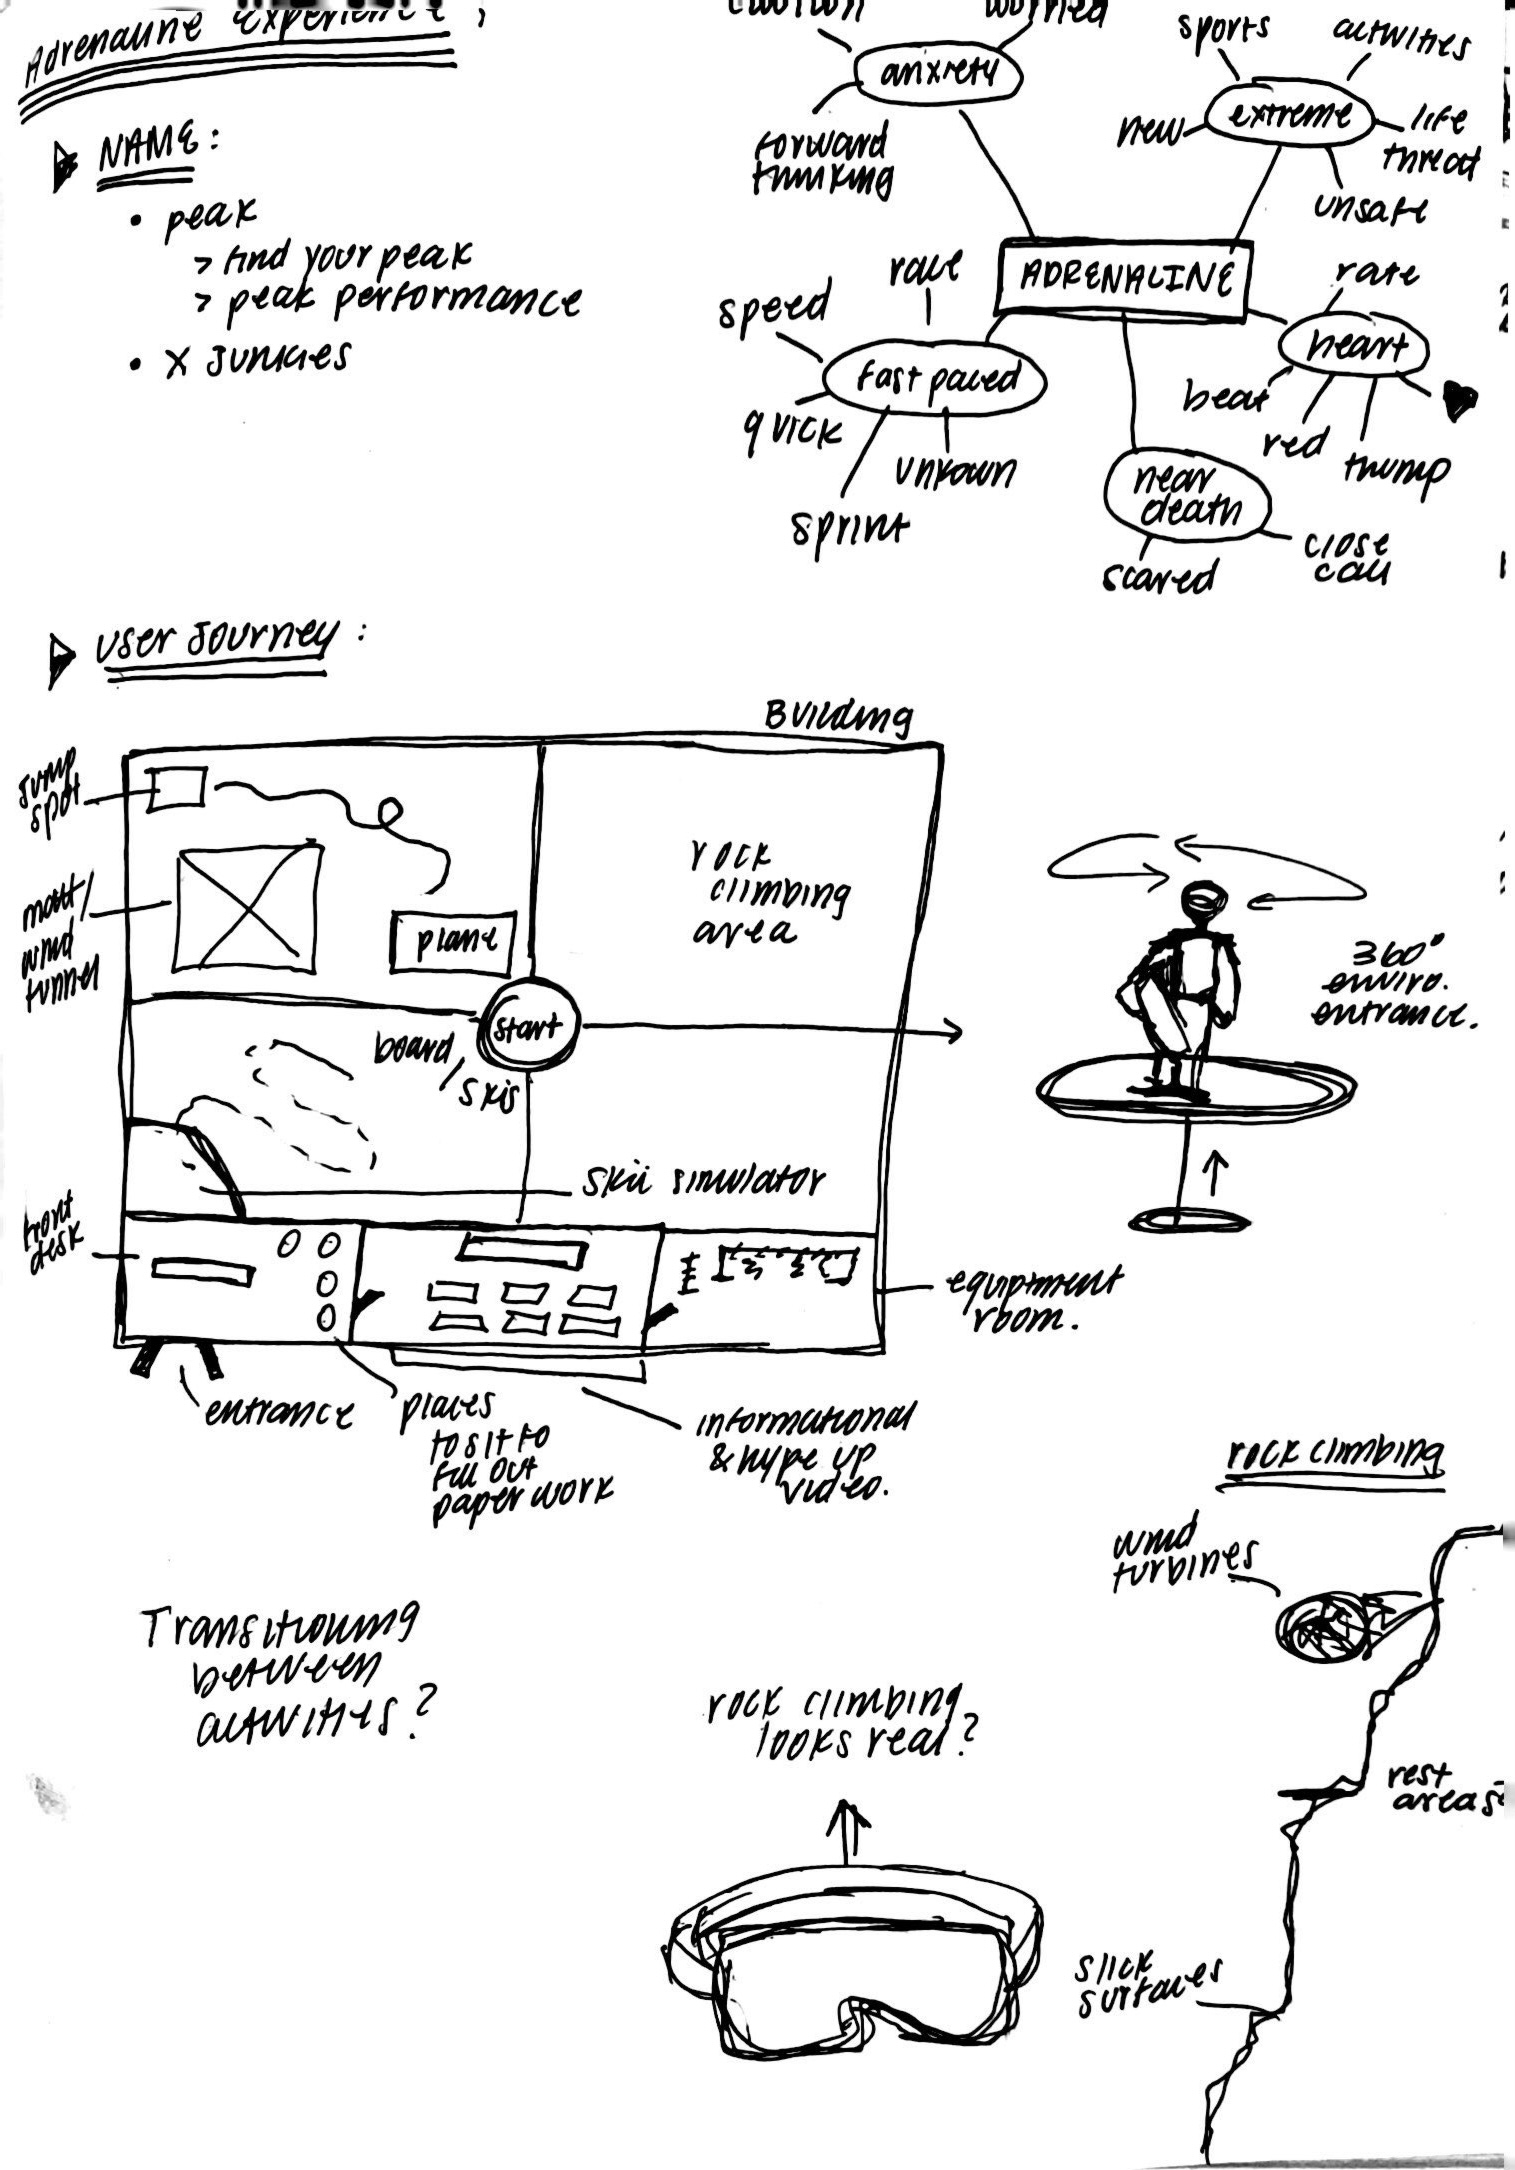 Adrenaline Experience:
NAME:
• peak
> find your peak
> peak performance
• X JUNKIES
worried
anxiety
forward
thinking
sports
activities
extreme
new
life
threat
unsafe
ADRENALINE
race
speed
fast paced
quick
unkown
sprint
rate
heart
beat
red
thump
near
death
scared
close
call
USER JOURNEY:
Building
Jump
spot
matt/
wind
tunnel
plane
rock
climbing
area
start
board/
skis
skii simulator
front
desk
equiptment
room.
entrance
places
to sit to
fill out
paper work
informational
& hype up
video.
360°
enviro.
entrance.
Transitioning
between
activities?
rock climbing
looks real?
rock climbing
wind
turbines
rest
areas
slick
surfaces